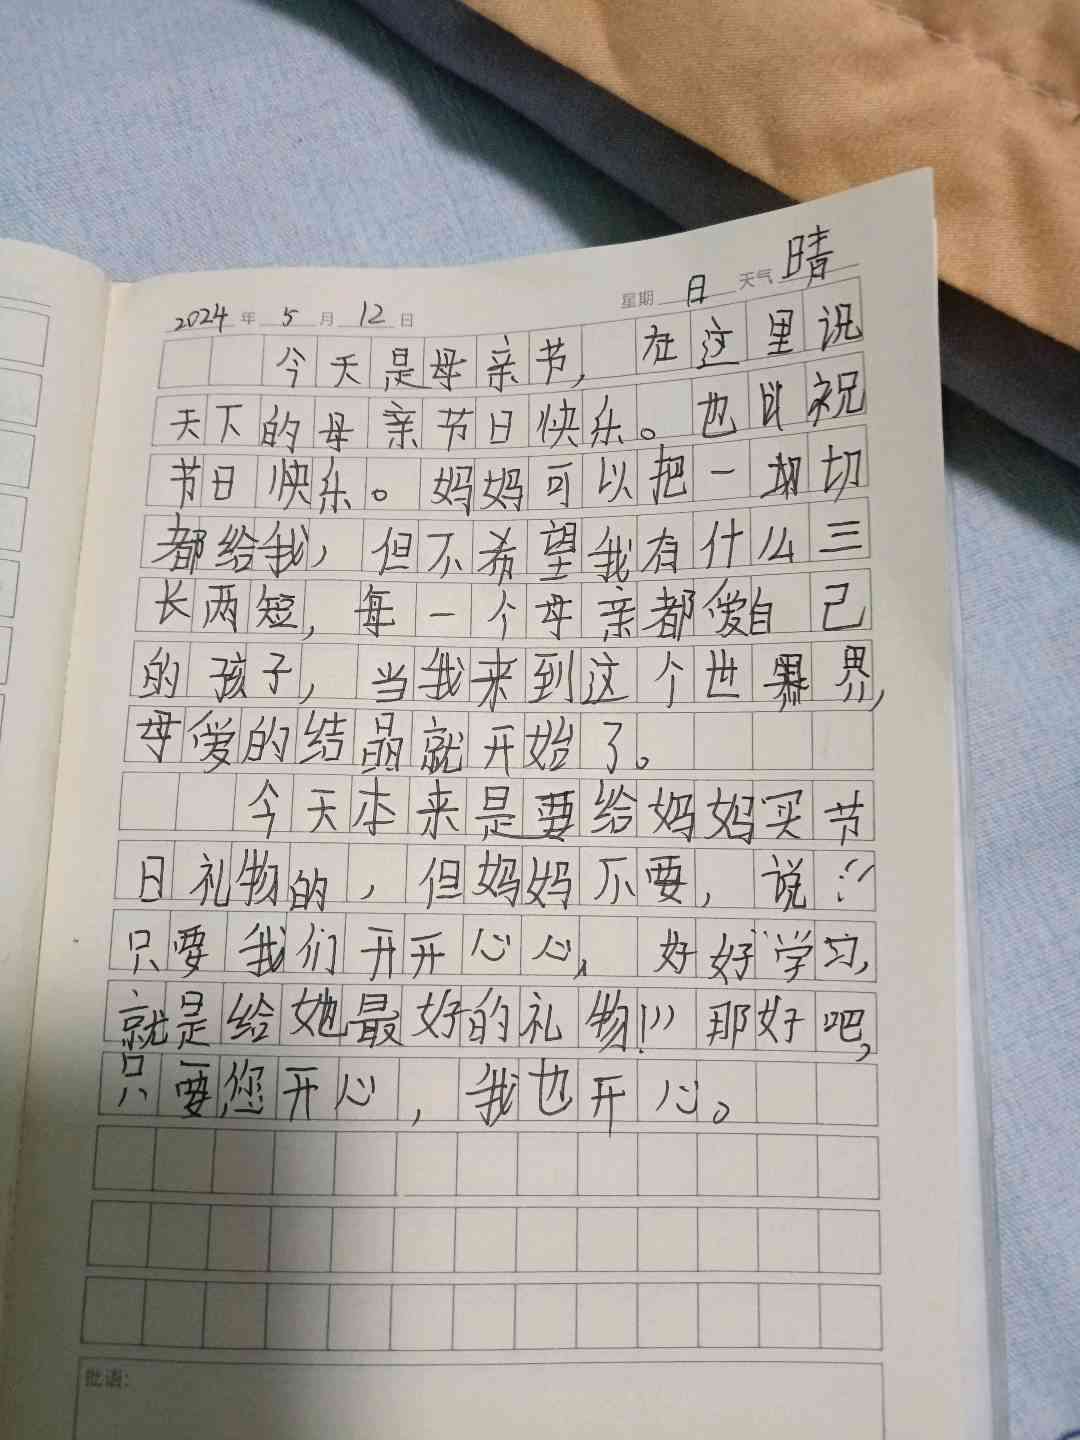 2024年5月12日 星期日 天气晴
今天是母亲节,在这里说
天下的母亲节日快乐。也 祝
节日快乐。妈妈可以把一切
都给我,但不希望我有什么三
长两短,每一个母亲都爱自己
的孩子,当我来到这个世界,
母爱的结晶就开始了。
今天本来是要给妈妈买节
日礼物的,但妈妈不要,说:“
只要我们开开心心,好好学习,
就是给她最好的礼物!”那好吧,
只要您开心,我也开心。
批语: